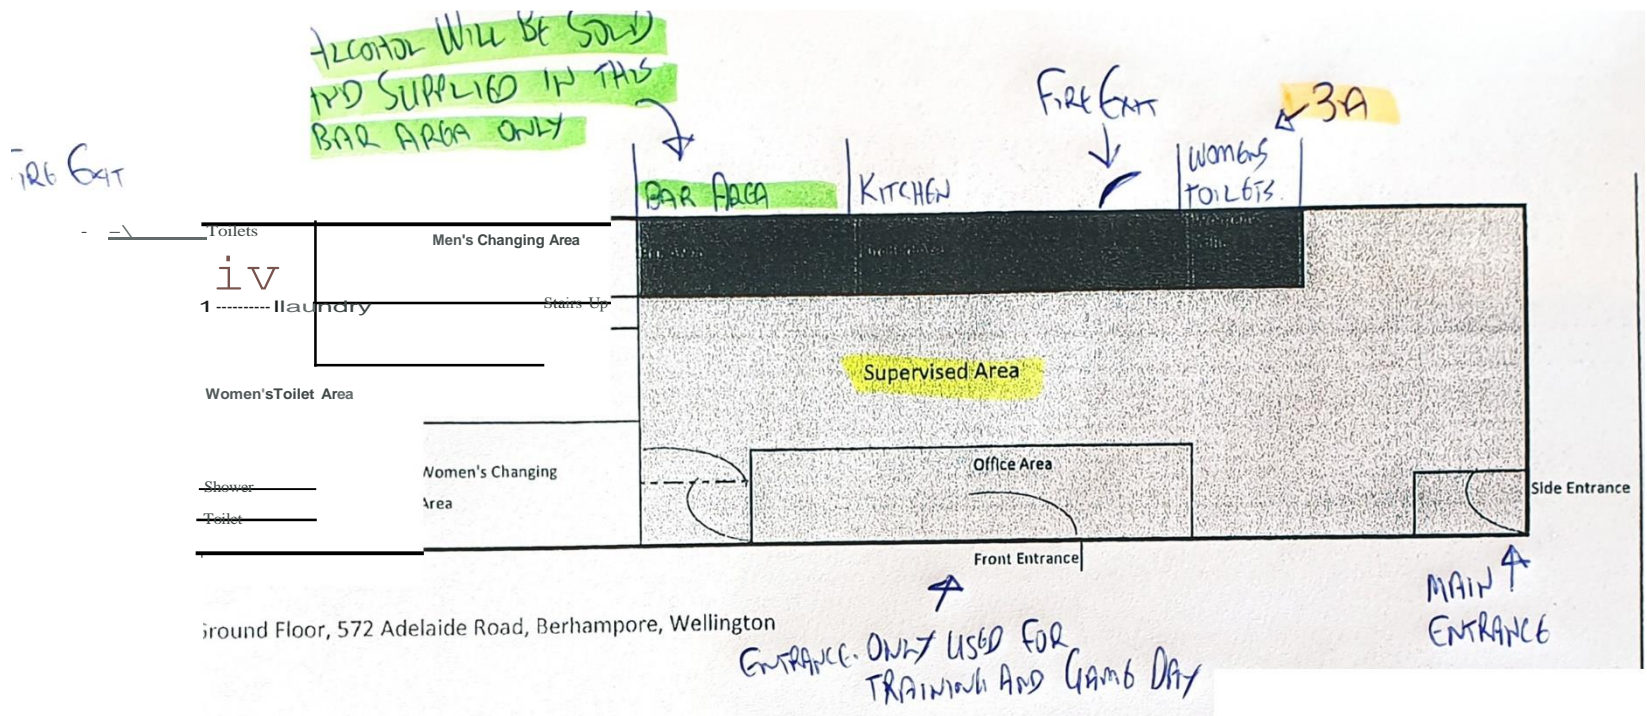 ALCOHOL WILL BE SOLD
AND SUPPLIED IN THIS
BAR AREA ONLY
FIRE EXIT
3A
FIRE EXIT
BAR AREA
KITCHEN
WOMENS
TOILETS.
Toilets
Men's Changing Area
iv
1 ---------- llaundry
Stairs Up
Supervised Area
Women'sToilet Area
Women's Changing
Area
Office Area
Shower
Toilet
Side Entrance
Front Entrance
MAIN
ENTRANCE
Ground Floor, 572 Adelaide Road, Berhampore, Wellington
ENTRANCE. ONLY USED FOR
TRAINING AND GAME DAY